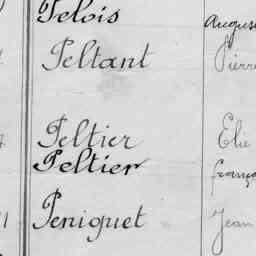 Pelois
Peltant Pierre
Peltier Elie
Peltier
Peniguet Jean